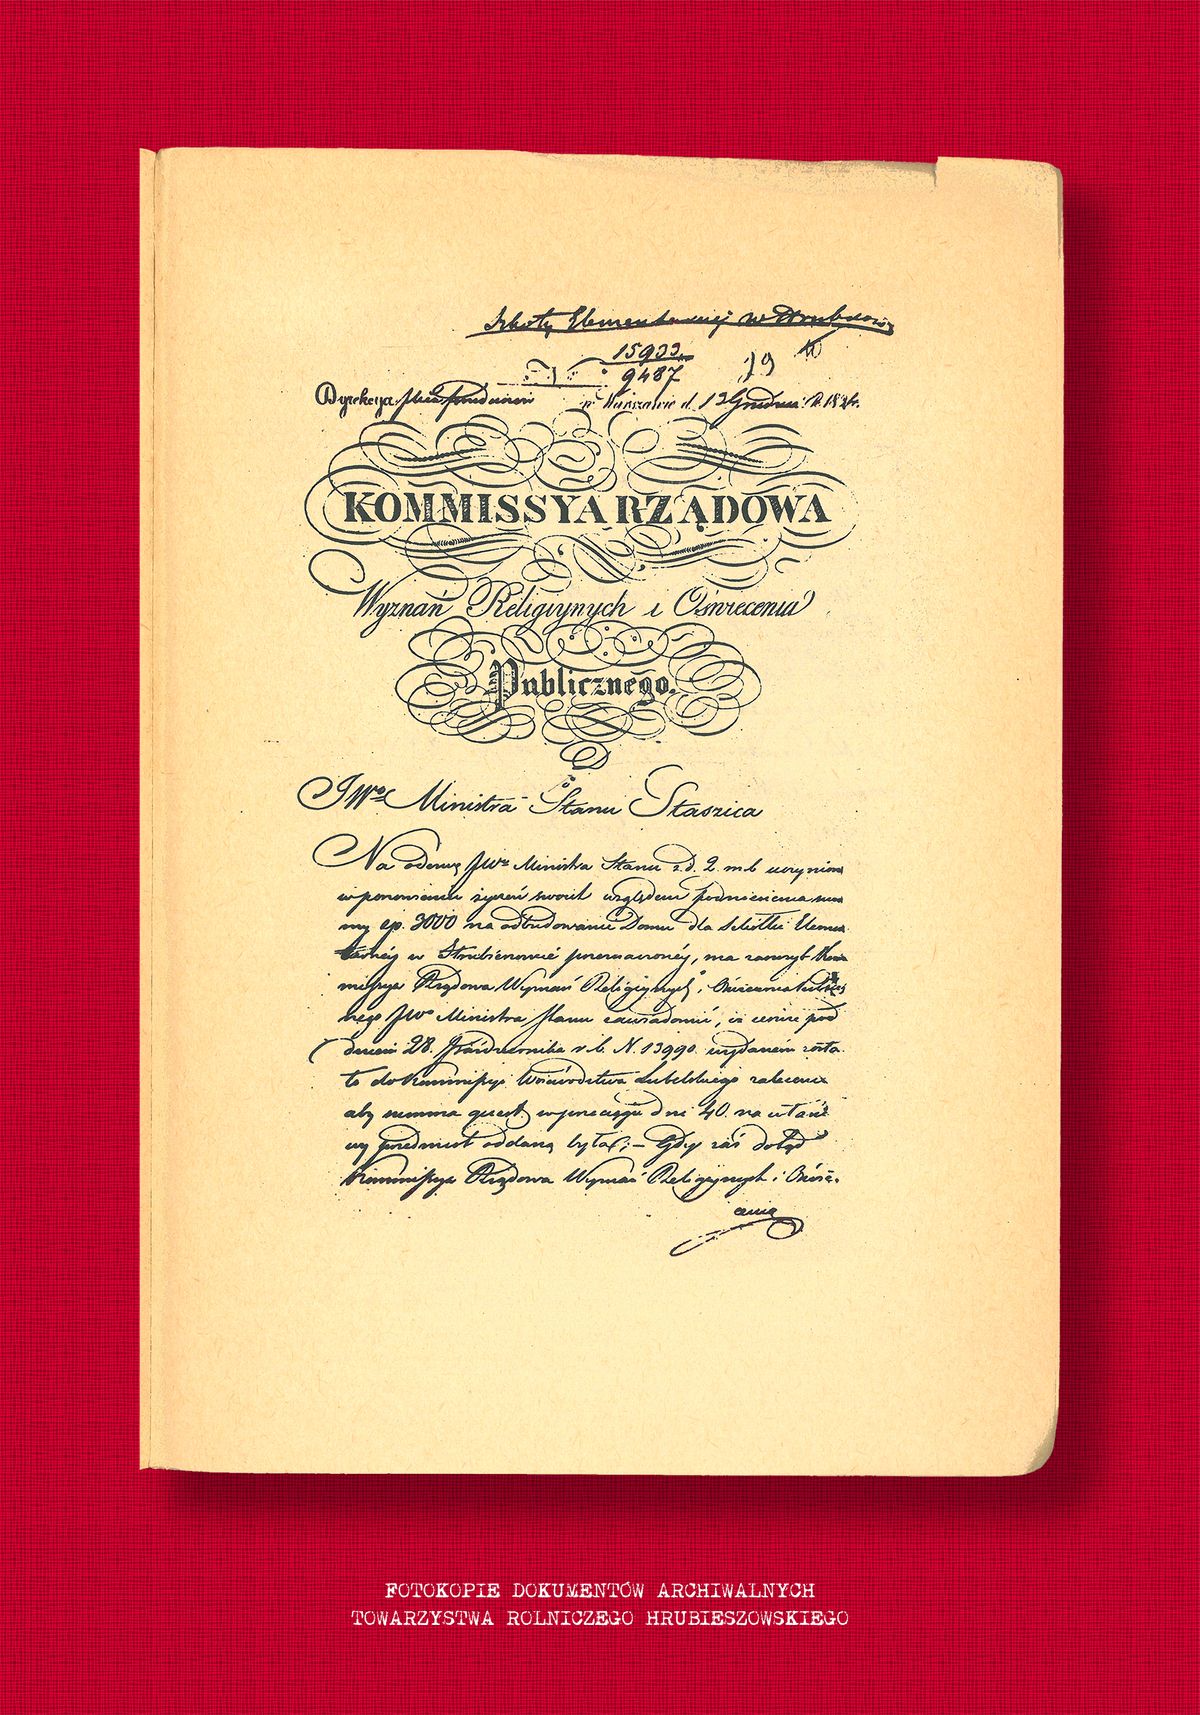 Szkoły Elementarnéj w Hrubieszowie
15933
9487
19
Dyrekcya w Warszawie d. 12 Grudnia R. 182
KOMMISSYA RZĄDOWA
Wyznań Religiynych i Oświecenia
Publicznego.
JWo Ministra Stanu Staszica
Na odezwę JWo Ministra Stanu z d. 2. m. b. uczynioną
w ponowieniu życzeń swoich względem podniesienia sum
my zp. 3000 na odbudowanie Domu dla Szkółki Elemen
tarnéj w Hrubieszowie przeznaczonéj, ma zaszczyt Kom
missya Rządowa Wyznań Religiynych i Oświecenia Publicz
nego JWo Ministra Stanu zawiadomić, iż pod
dniem 28. Października r. b. N. 13990. wydaném zosta
ło do Kommissyi Woiewództwa Lubelskiego zalecenie
aby summa quest. w przeciągu dni 40. na właści
wy przedmiot oddaną była; – Gdy zaś dotąd
Kommissya Rządowa Wyznań Religiynych i Oświe-
cenia
FOTOKOPIE DOKUMENTÓW ARCHIWALNYCH
TOWARZYSTWA ROLNICZEGO HRUBIESZOWSKIEGO